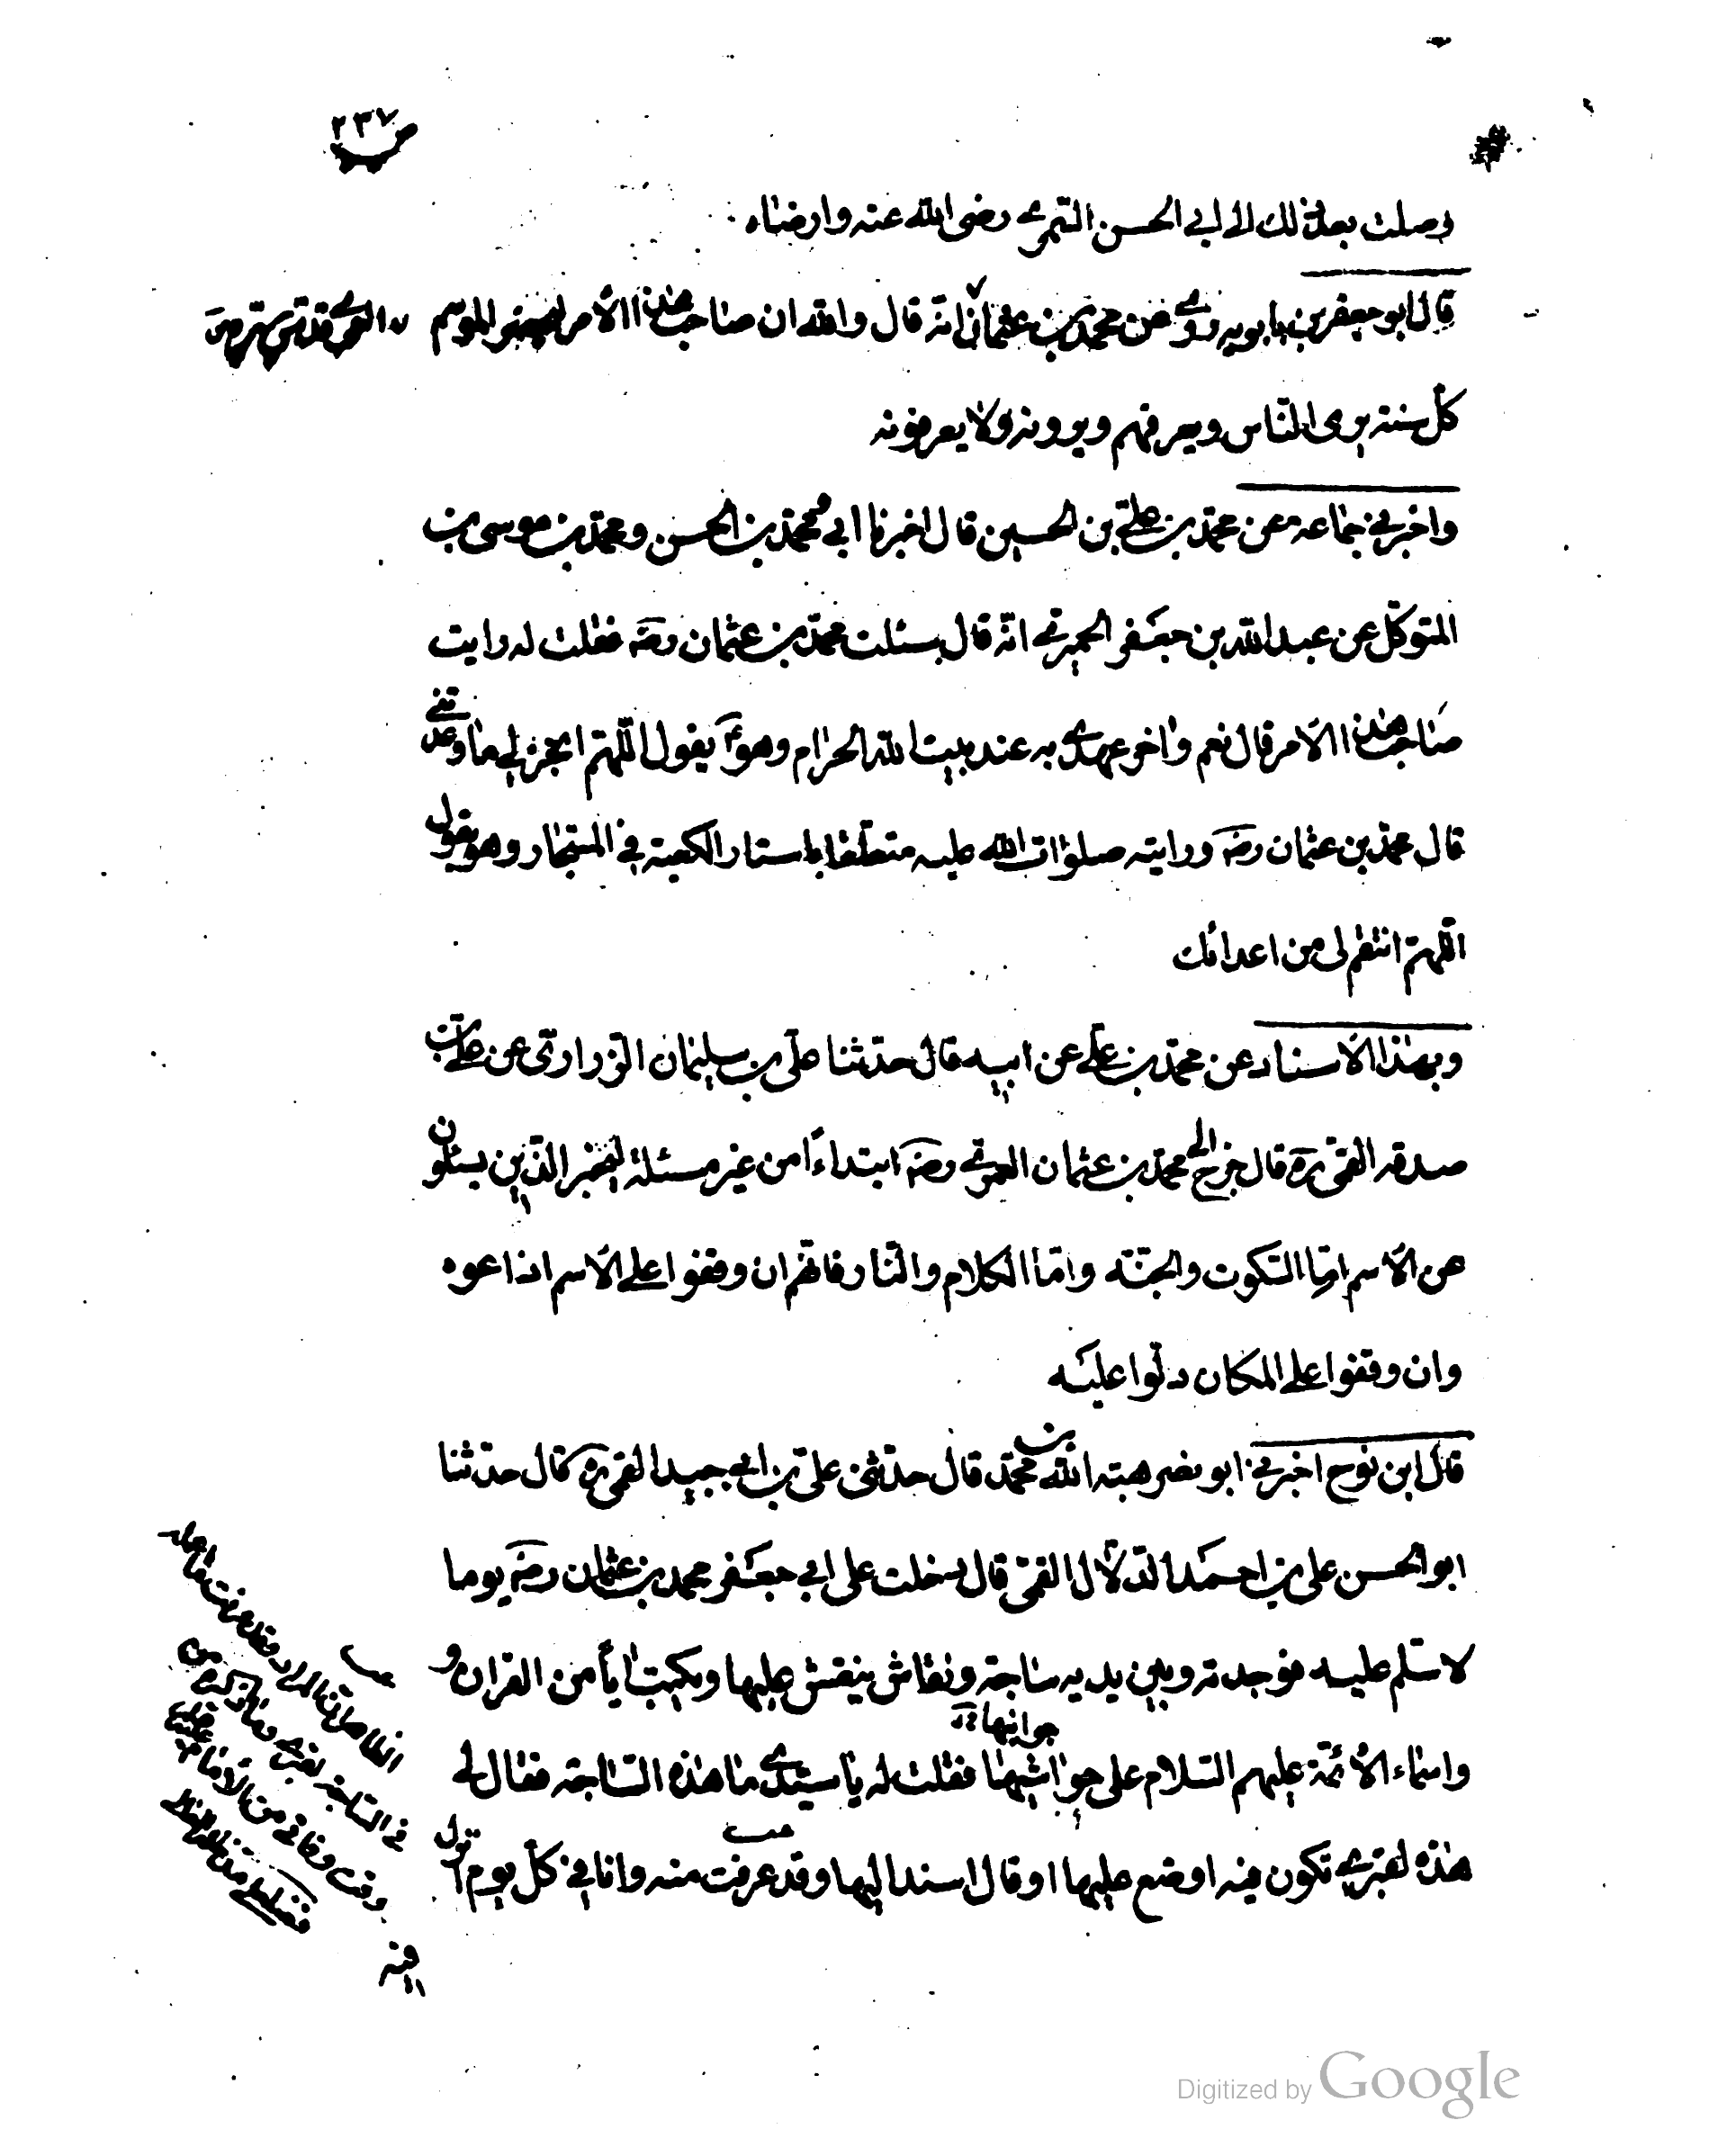 ص ٢٣٧
وصلت بعد ذلك الى ابي الحسن السّمري رضى الله عنه وارضاه
قال ابو جعفر بن بابويه روى عن محمد بن عثمان انّه قال والله ان صاحب هذا الأمر ليحضر الموسم
العمرى قدس سره
كلّ سنة يرى النّاس ويعرفهم ويرونه ولا يعرفونه
واخبرني جماعة عن محمّد بن علىّ بن الحسين قال اخبرنا ابي ومحمّد بن الحسن ومحمّد بن موسى بن
المتوكّل عن عبد الله بن جعفر الحميري انّه قال سئلت محمّد بن عثمان رضه فقلت له رايت
صاحب هذا الأمر قال نعم واخر عهدي به عند بيت الله الحرام وهو ع يقول اللّهمّ انجز لي ما وعدتني
قال محمّد بن عثمان رضه ورايته صلوات الله عليه متعلّقا باستار الكعبة في المستجار وهو يقول
اللّهمّ انتقم لى من اعدائك
وبهذا الأسناد عن محمّد بن علي عن ابيه قال حدّثنا علىّ بن سليمان الزّرارى عن علىّ بن
صدقه القمّى ره قال خرج الى محمّد بن عثمان العمرى رضه ابتداءً من غير مسئلة ليخبر الّذين يسئلون
عن الأسم امّا السّكوت والجنّة وامّا الكلام والنّار فانّهم ان وقفوا على الأسم اذاعوه
وان وقفوا على المكان دلّوا عليه
قال ابن نوح اخبرني ابو نصر هبة الله بن محمّد قال حدّثنى علىّ بن ابى جيد القمّى ره قال حدّثنا
ابو الحسن علي بن احمد الدّلّال القمّى قال دخلت على ابي جعفر محمد بن عثمان رضه يوما
لاسلّم عليه فوجدته وبين يديه ساجة ونقّاش ينقش عليها ويكتب اياً من القران و
واسماء الأئمّة عليهم السّلام على حواشيها فقلت له يا سيّدي ما هذه السّاجة فقال لى
جوانبها
هذه لقبرى تكون فيه اوضع عليها او قال اسند اليها وقد عرفت منه وانا في كلّ يوم انزل
فيه